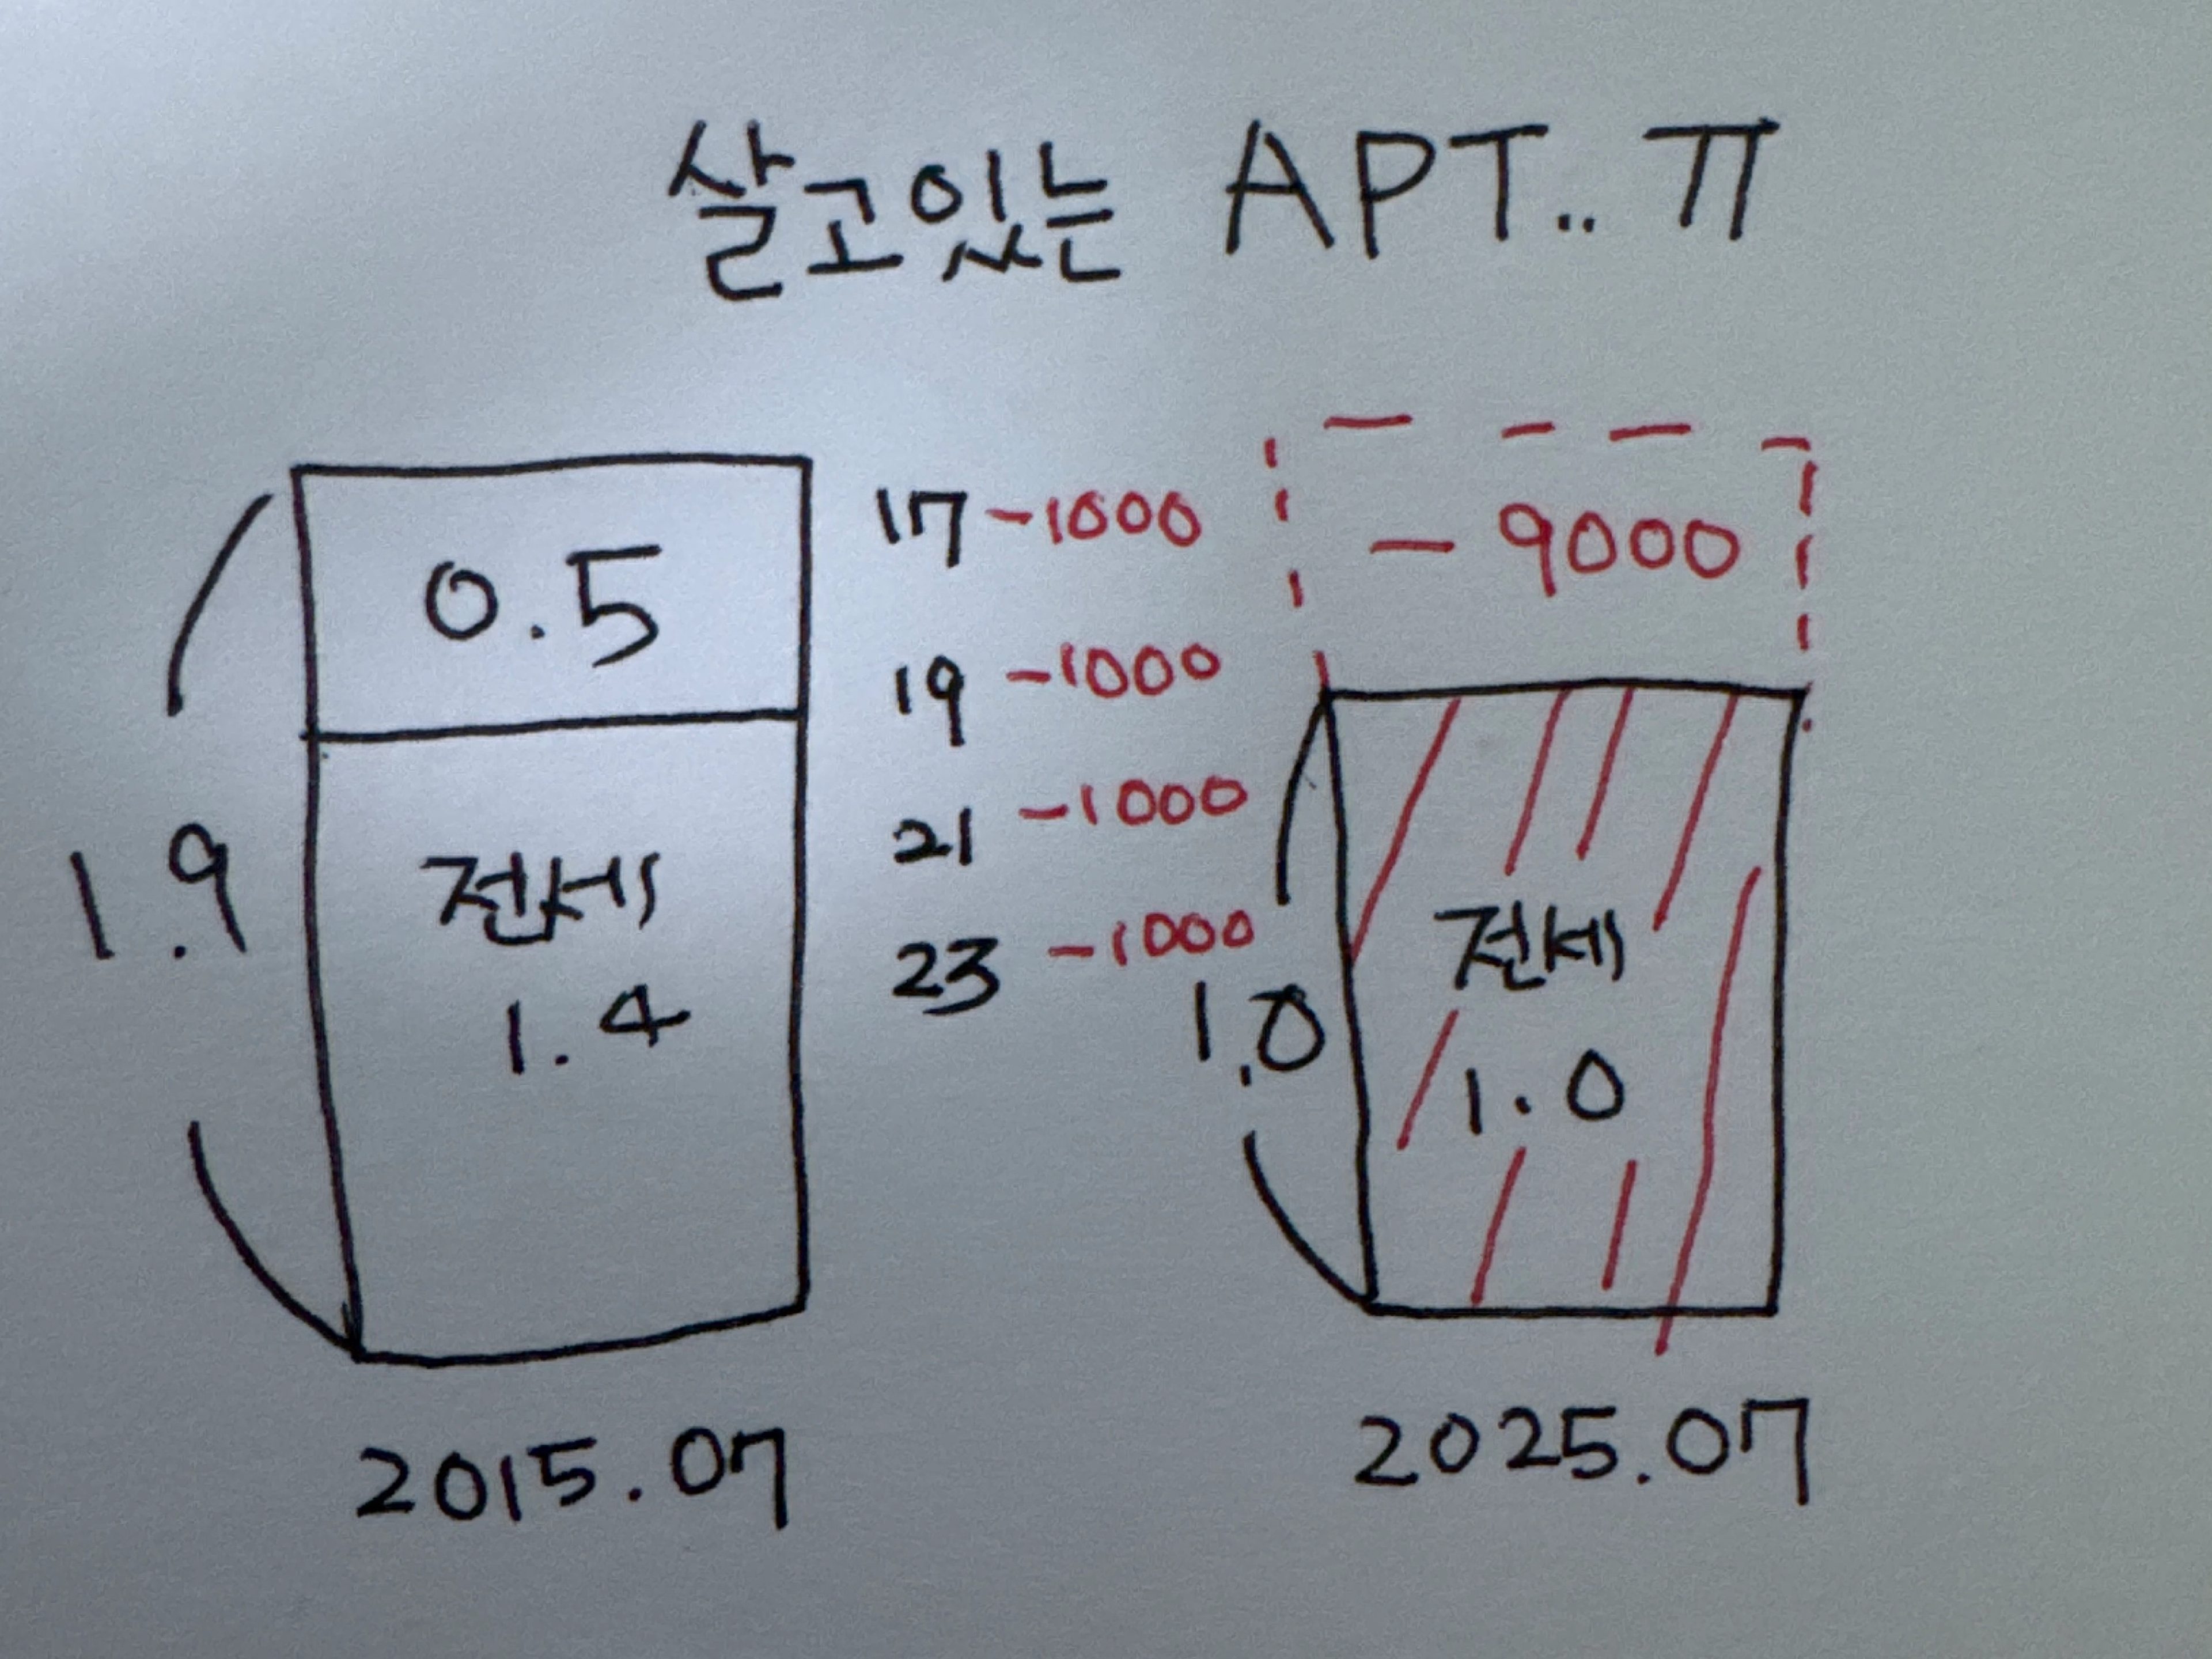 살고있는 APT.. ㅠ
0.5
1.9
전세
1.4
2015.07
17 -1000
19 -1000
21 -1000
23 -1000
-9000
1.0
전세
1.0
2025.07